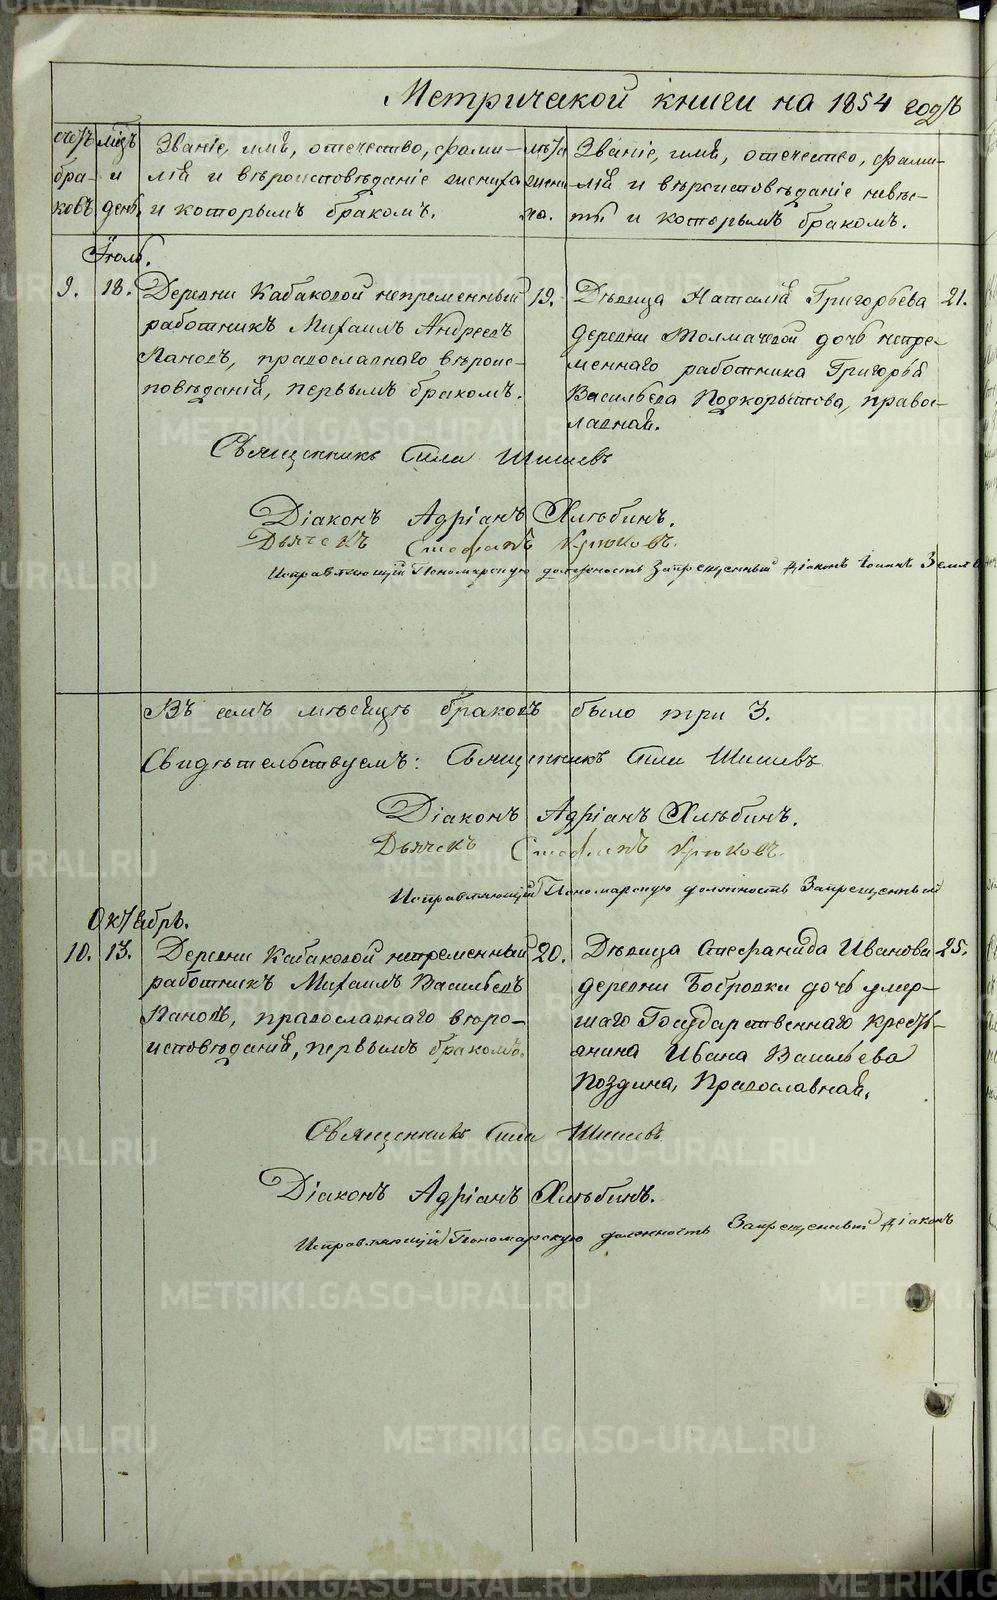 Метрической книги на 1854 годъ
счетъ бра- ковъ
мцъ и день
Званіе, имя, отечество, фами-
лія и вѣроисповѣданіе жениха
и которымъ бракомъ.
лѣта жени- ха.
Званіе, имя, отечество, фами-
лія и вѣроисповѣданіе невѣс-
ты и которымъ бракомъ.
Іюль.
9. 18. Деревни Кабаковой непременный 19. Дѣвица Наталія Григорьева 21.
работникъ Михаилъ Андреевъ деревни Толмачевой дочь непре-
Пановъ, православнаго вѣроис- меннаго работника Григорья
повѣданія, первымъ бракомъ. Васильева Подкорытова, правос-
лавная.
Священникъ Сила Шишевъ
Діаконъ Адріанъ Хлѣбинъ.
Дьячекъ Стефанъ Крюковъ.
Исправляющій Пономарскую должность Запрещенный діаконъ Іоаннъ
Въ семъ мѣсяцѣ браковъ было три 3.
Свидѣтельствуемъ: Священникъ Сила Шишевъ
Діаконъ Адріанъ Хлѣбинъ.
Дьячекъ Стефанъ Крюковъ.
Исправляющій Пономарскую должность Запрещенный
Октябрь.
10. 13. Деревни Кабаковой непременный 20. Дѣвица Стефанида Иванова 25.
работникъ Михаилъ Васильевъ деревни Бобровки дочь умер-
Пановъ, православнаго вѣро- шаго Государственнаго кресть-
исповѣданія, первымъ бракомъ. янина Ивана Васильева
Поздина, Православная.
Священникъ Сила Шишевъ
Діаконъ Адріанъ Хлѣбинъ.
Исправляющій Пономарскую должность Запрещенный діаконъ
METRIKI.GASO-URAL.RU